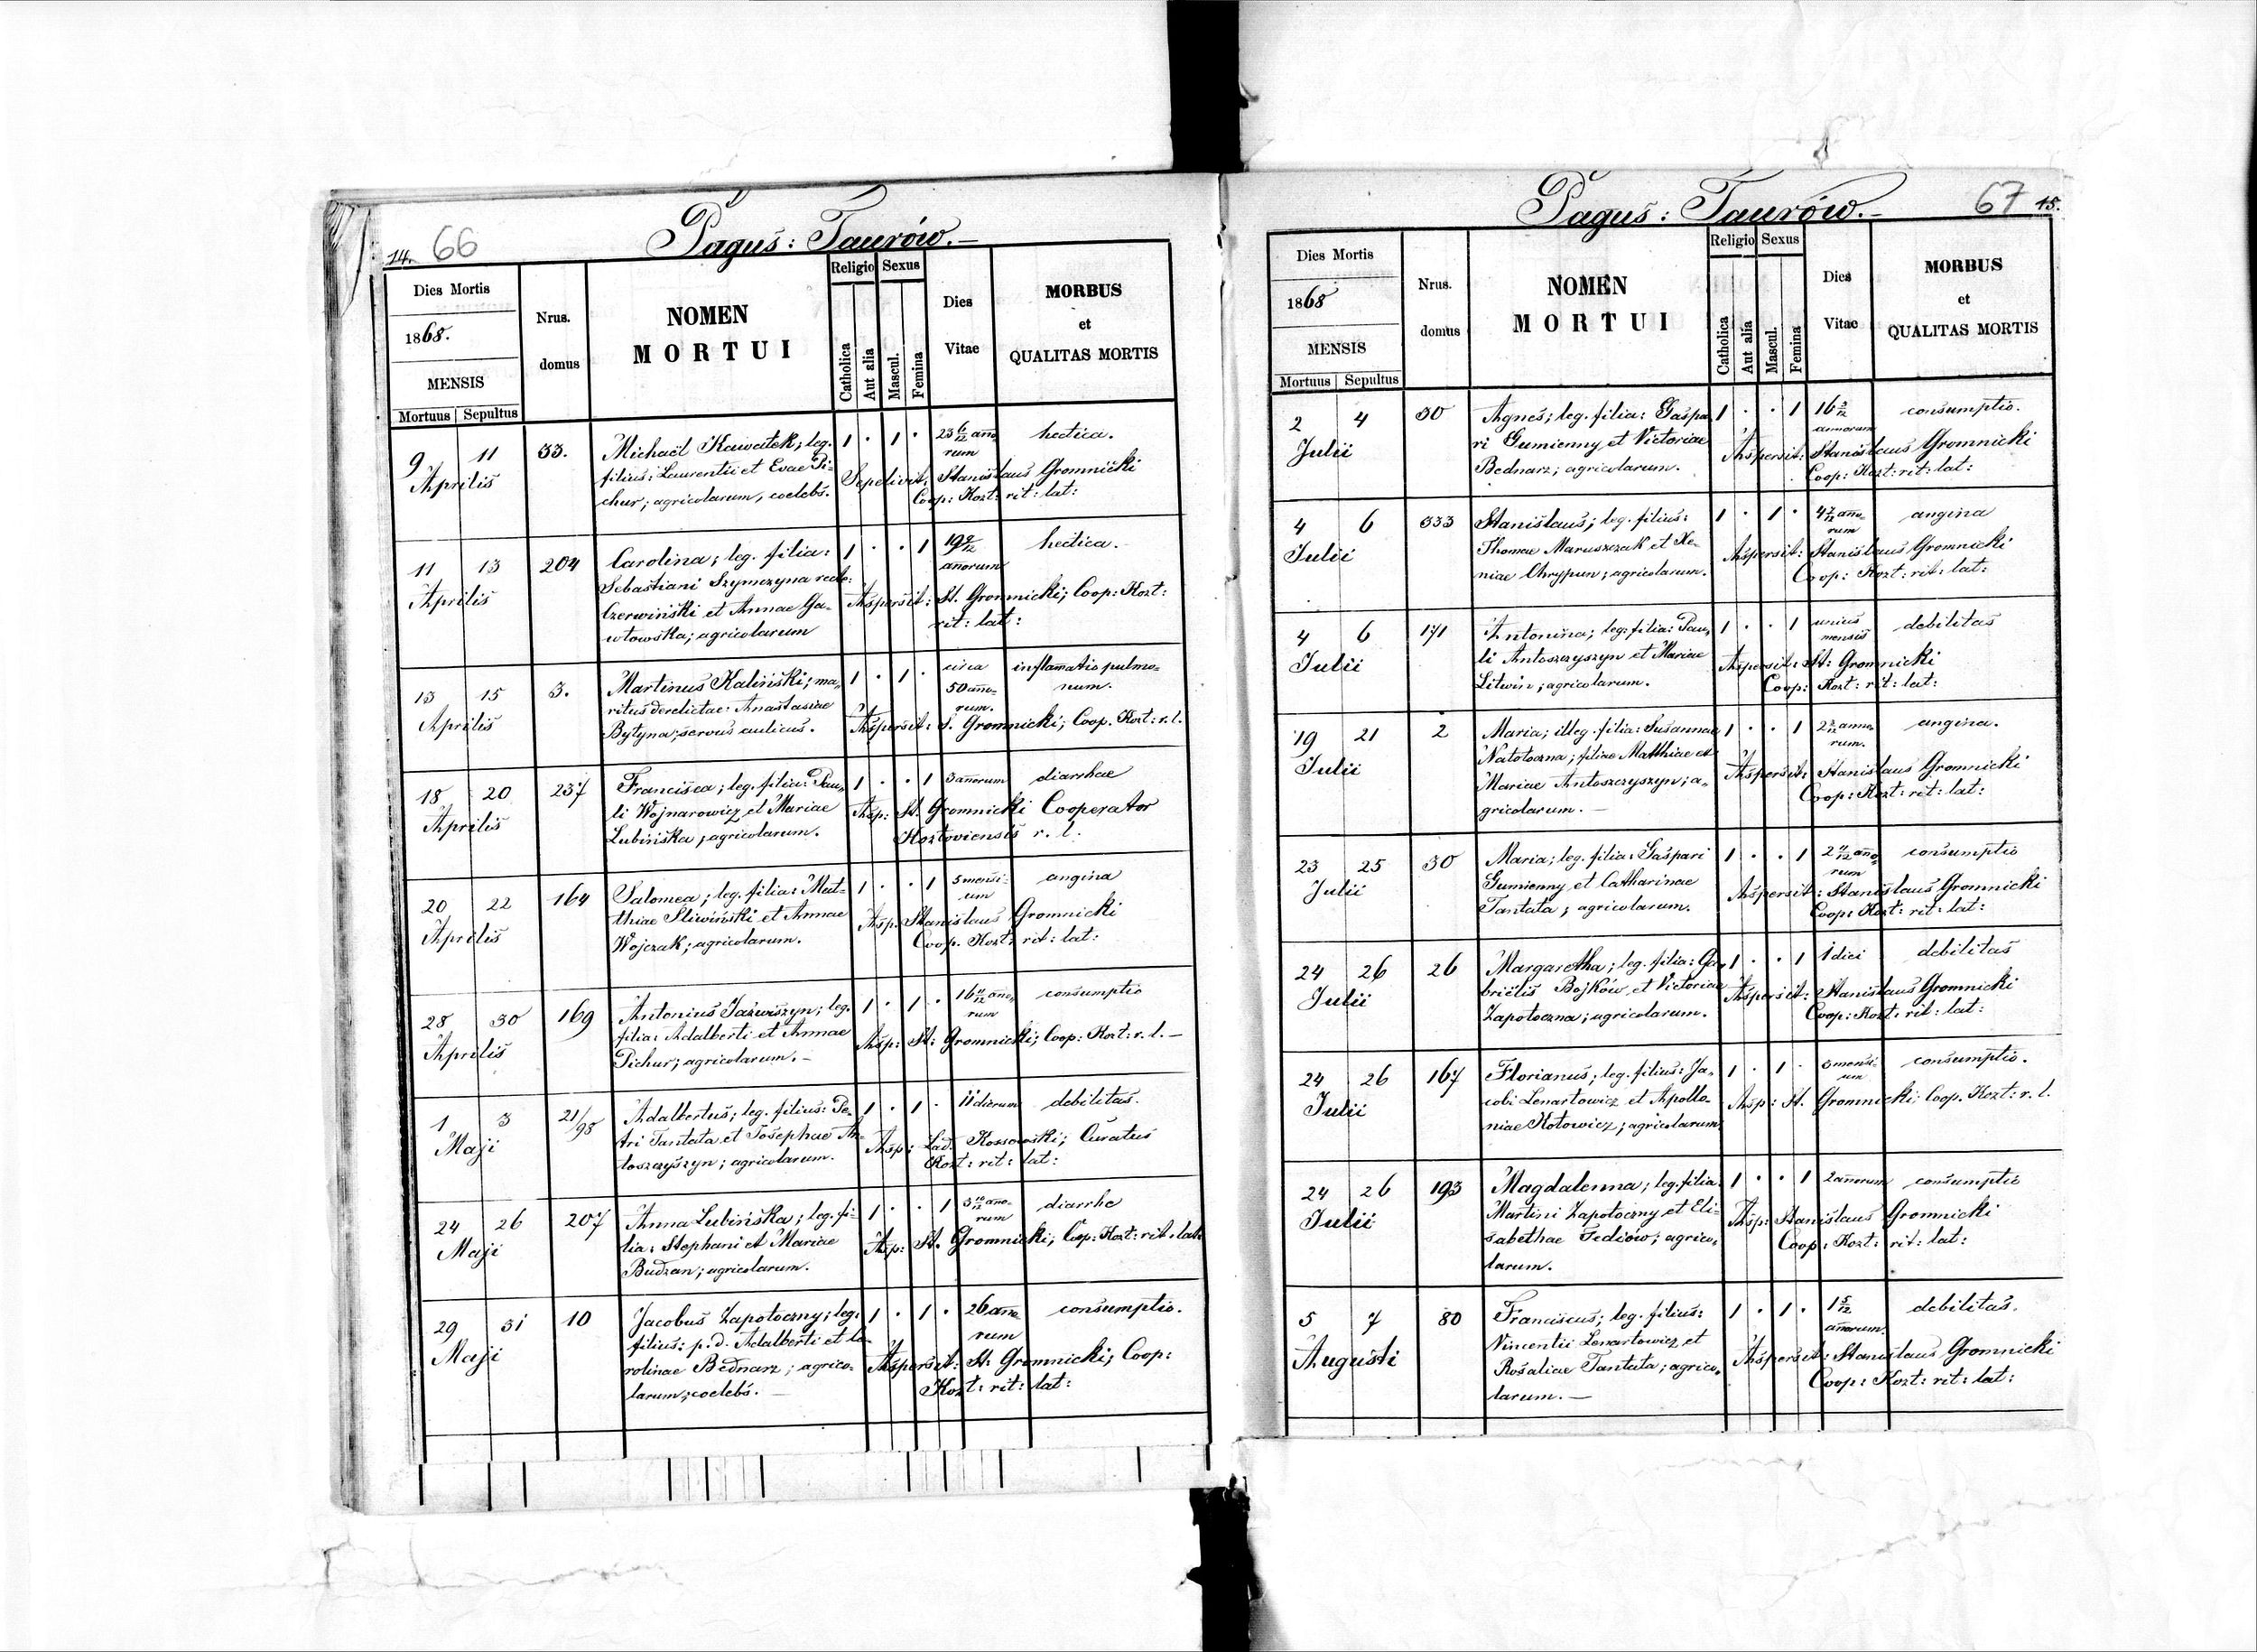 14. 66
Pagus: Taurów.—
Dies Mortis
1868.
MENSIS
Mortuus | Sepultus
Nrus.
domus
NOMEN
MORTUI
Religio
Catholica
Aut alia
Sexus
Mascul.
Femina
Dies
Vitae
MORBUS
et
QUALITAS MORTIS
9 11 33. Michaël Kawatek; leg. 1 · 1 · 23 6/12 año hectica.
Aprilis filius: Laurentii et Evae Pi- rum
chur; agricolarum, coelebs. Sepelivit: Stanislaus Gromnicki
Coop: Kozt: rit: lat:
11 13 204 Carolina; leg. filia: 1 · · 1 19 hectica.
Aprilis Sebastiani Szymczyna recte: añorum
Czerwiński et Annae Ga- Aspersit: St. Gromnicki; Coop: Kozt:
wtowska; agricolarum rit: lat:
13 15 3. Martinus Kaliński; ma- 1 · 1 · circa inflamatio pulmo-
Aprilis ritus derelictae: Anastasiae 50 año- num.
rum.
Bytyna; servus aulicus. Aspersit: S. Gromnicki; Coop. Kozt: r. l.
18 20 237 Francisca; leg. filia: Pau- 1 · · 1 3 añorum diarrhae
Aprilis li Wojnarowicz et Mariae Asp: St. Gromnicki Cooperator
Lubińska; agricolarum. Koztoviensis r. l.
20 22 164 Salomea; leg. filia: Mat- 1 · · 1 5 mensi- angina
Aprilis thiae Sliwiński et Annae um
Wojczak; agricolarum. Asp. Stanislaus Gromnicki
Coop. Kozt: rit: lat:
28 30 169 Antonius Jazwiszyn; leg. 1 · 1 · 16 11/12 año- consumptio
Aprilis filia: Adalberti et Annae rum
Pichur; agricolarum.— Asp: St: Gromnicki; Coop: Kozt: r. l.—
1 3 21/98 Adalbertus; leg. filius: Pe- 1 · 1 · 11 dierum debilitas.
Maji tri Tantata et Josephae An- Asp: Lad. Kossowski; Curatus
toszczyszyn; agricolarum. Kozt: rit: lat:
24 26 207 Anna Lubińska; leg. fi- 1 · · 1 3 10/12 año- diarrhe
Maji lia: Stephani et Mariae rum
Budzan; agricolarum. Asp: St. Gromnicki; Coop: Kozt: rit: lat:
29 31 10 Jacobus Zapotoczny; leg. 1 · 1 · 26 año- consumptio.
Maji filius: p.d. Adalberti et Ca- rum
rolinae Bednarz; agrico- Aspersit: St: Gromnicki; Coop:
larum; coelebs.— Kozt: rit: lat:
67 15.
Pagus: Taurów.—
Dies Mortis
1868
MENSIS
Mortuus | Sepultus
Nrus.
domus
NOMEN
MORTUI
Religio
Catholica
Aut alia
Sexus
Mascul.
Femina
Dies
Vitae
MORBUS
et
QUALITAS MORTIS
2 4 30 Agnes; leg. filia: Gaspa- 1 · · 1 16 consumptio.
Julii ri Gumienny et Victoriae annorum
Bednarz; agricolarum. Aspersit: Stanislaus Gromnicki
Coop: Kozt: rit: lat:
4 6 333 Stanislaus; leg. filius: 1 · 1 · 4 7/12 año- angina
Julii Thomae Maruszczak et Xe- rum
niae Chrypun; agricolarum. Aspersit: Stanislaus Gromnicki
Coop: Kozt: rit: lat:
4 6 171 Antonina; leg: filia: Pau- 1 · · 1 unius debilitas
Julii li Antoszczyszyn et Mariae mensis
Litwin; agricolarum. Aspersit: St: Gromnicki
Coop: Kozt: rit: lat:
19 21 2 Maria; illeg. filia: Susannae 1 · · 1 2 anno- angina.
Julii Natotoczna; filiae Matthiae et rum.
Mariae Antoszczyszyn; a- Aspersit: Stanislaus Gromnicki
gricolarum.— Coop: Kozt: rit: lat:
23 25 30 Maria; leg. filia: Gaspari 1 · · 1 2 11/12 año- consumptio
Julii Gumienny et Catharinae rum
Tantata; agricolarum. Aspersit: Stanislaus Gromnicki
Coop: Kozt: rit: lat:
24 26 26 Margaretha; leg. filia: Ga- 1 · · 1 1 diei debilitas
Julii briëlis Bojków et Victoriae Aspersit: Stanislaus Gromnicki
Zapotoczna; agricolarum. Coop: Kozt: rit: lat:
24 26 167 Florianus; leg. filius: Ja- 1 · 1 · 3 mensi- consumptio.
Julii cobi Lenartowicz et Apollo- um
niae Kotowicz; agricolarum. Asp: St. Gromnicki; Coop. Kozt: r. l.
24 26 193 Magdalenna; leg. filia: 1 · · 1 2 añorum consumptio
Julii Martini Zapotoczny et Eli- Asp: Stanislaus Gromnicki
sabethae Fediów; agrico- Coop: Kozt: rit: lat:
larum.
5 7 80 Franciscus; leg. filius: 1 · 1 · 1 5/12 debilitas.
Augusti Vincentii Lenartowicz et añorum.
Rosaliae Tantata; agrico- Aspersit: Stanislaus Gromnicki
larum.— Coop: Kozt: rit: lat: